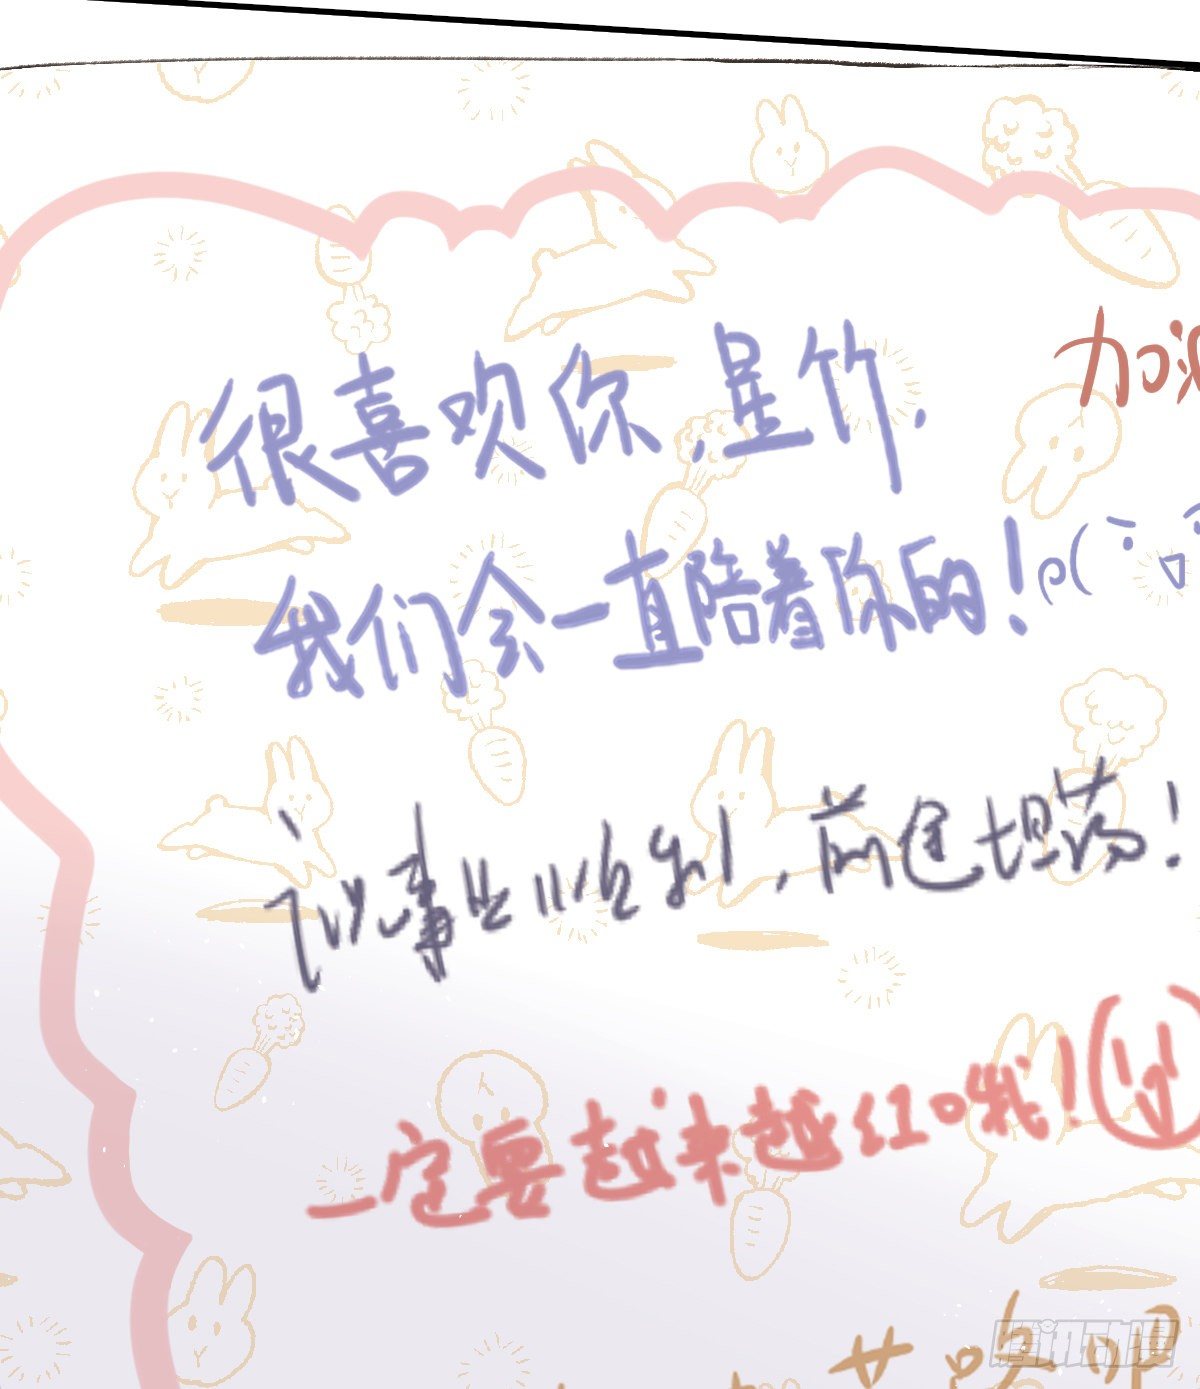 很喜欢你,星竹.
加油
我们会一直陪着你的!
诸事皆顺利,前途坦荡!
一定要越来越红哦!
腾讯动漫